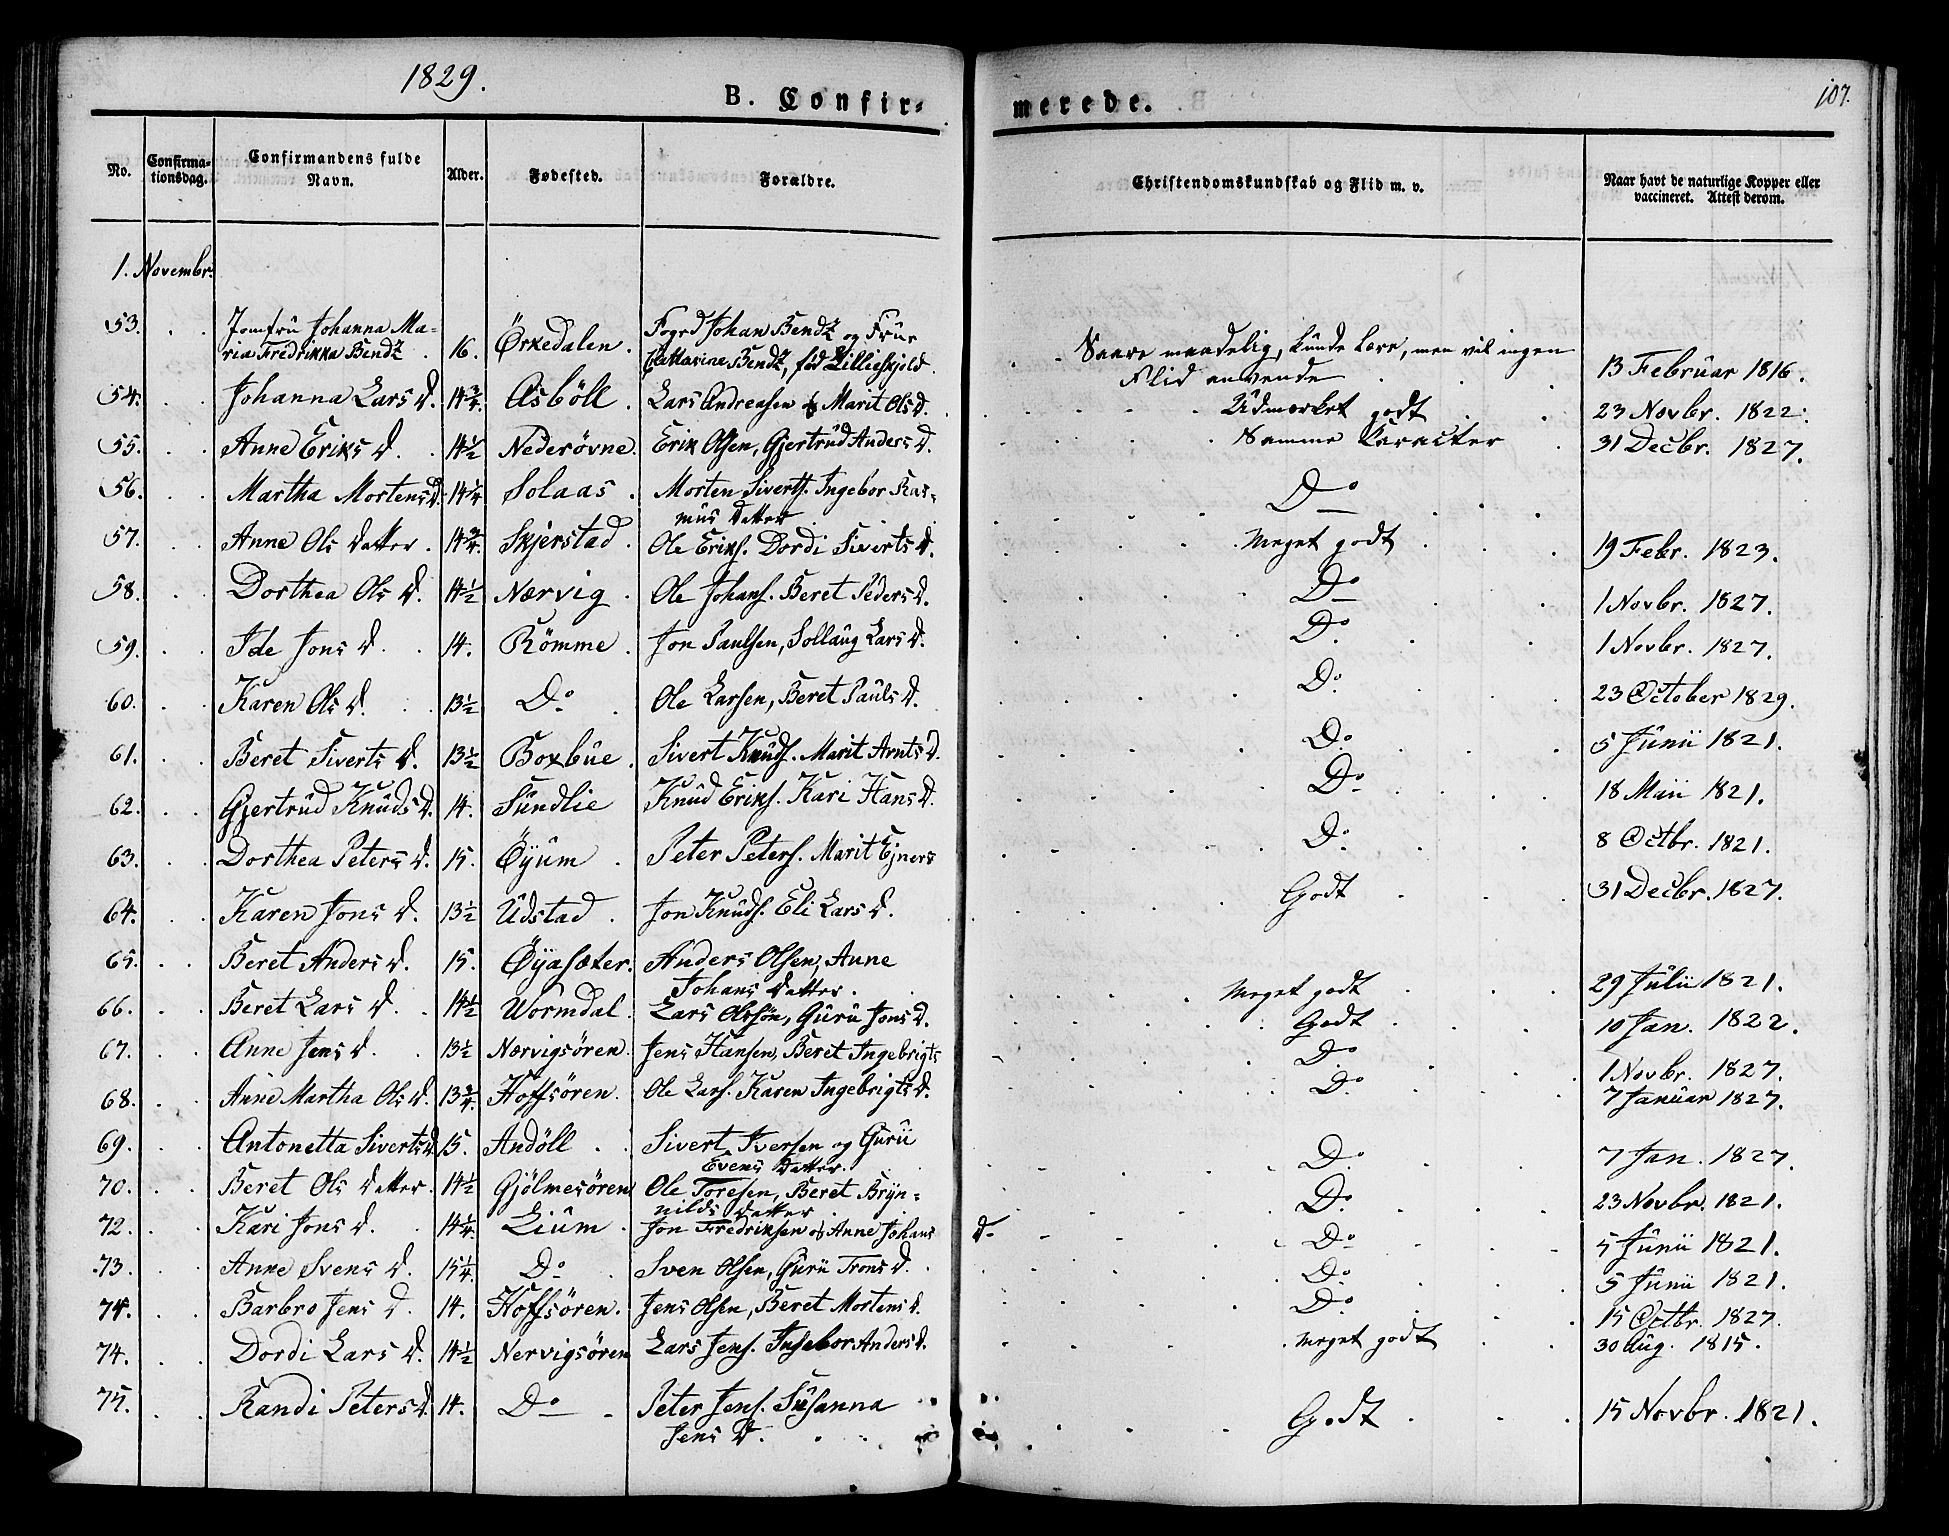 1829.
B. Confir-
merede.
107.
No.
Confirma-
tionsdag.
Confirmandens fulde
Navn.
Alder.
Fødested.
Forældre.
Christendomskundskab og Flid m. v.
Naar havt de naturlige Kopper eller
vaccineret. Attest derom.
1. Novembr.
53. Jomfrü Johanna Ma-
ria Fredrikka Bendz 16. Örkedalen. Fogd Johan Bendz og Früe
Cattarina Bendz, fød Lillieskjold.
Saare maadelig, kunde lære, men vil ingen
Flid anvende 13 Februar 1816.
54. Johanna Lars D. 14 3/4. Asböll. Lars Andreasen & Marit Ols D. Udmærket godt 23 Novbr. 1822.
55. Anne Eriks D. 14 1/2 Nederövne. Erik Olsen, Gjertrüd Anders D. Samme Caracter 31 Decbr. 1827.
56. Martha Mortens D. 14 1/4 Solaas. Morten Siverts. Ingebor Ras-
müs Datter Do
57. Anne Ols Datter. 14 3/4. Skjerstad. Ole Eriks. Dordi Siverts D. Meget godt 19 Febr. 1823.
58. Dorthea Ols D. 14 1/2 Nærvig. Ole Johans. Beret Peders D. Do 1 Novbr. 1827.
59. Ide Jons D. 14. Römme. Jon Paulsen, Sollaug Lars D. Do 1 Novbr. 1827.
60. Karen Ols D. 13 1/2 Do. Ole Larsen, Beret Pauls D. Do 23 October 1829.
61. Beret Siverts D. 13 1/2 Boxbüe. Sivert Knuds. Marit Arnts D. Do 5 Junii 1821.
62. Gjertrüd Knüds D. 14. Sündlie Knüd Eriks. Kari Hans D. Do 18 Maii 1821.
63. Dorthea Peters D. 15. Öyüm. Peter Peters. Marit Ejners Do 8 Octbr. 1821.
64. Karen Jons D. 13 1/2 Üdstad. Jon Knüds. Eli Lars D. Godt 31 Decbr. 1827.
65. Beret Anders D. 15. Öyasæter. Anders Olsen, Anne
Johans Datter. Meget godt 29 Julii 1821.
66. Beret Lars D. 14 1/2 Wormdal. Lars Olssön, Gürü Jons D. Godt 10 Jan. 1822.
67. Anne Jens D. 13 1/2 Nærvigsören. Jens Hansen, Beret Ingebrigts Do 1 Novbr. 1827.
68. Anne Martha Ols D. 13 3/4. Hoffsören. Ole Lars. Karen Ingebrigts D. Do 7 Januar 1827.
69. Antonetta Siverts D. 15. Andöll. Sivert Iversen og Gürü
Evens Datter. Do 7 Jan. 1827.
70. Beret Ols Datter. 14 1/2 Gjölmesören Ole Toresen, Beret Bryn-
nilds Datter Do 23 Novbr. 1821.
72. Kari Jons D. 14 1/4. Liüm. Jon Fredriksen & Anne Johans D. Do 5 Junii 1821.
73. Anne Svens D. 15 1/4. Do. Sven Olsen, Gürü Trons D. Do 5 Junii 1821.
74. Barbro Jens D. 14. Hoffsören. Jens Olsen, Beret Mortens D. Do 15 Octbr. 1827.
74. Dordi Lars D. 14 1/2 Nervigsören Lars Jens. Ingebor Anders D. Meget godt 30 Aug. 1815.
75. Randi Peters D. 14. Do Peter Jens. Süsanna
Jens D. Godt 15 Novbr. 1821.